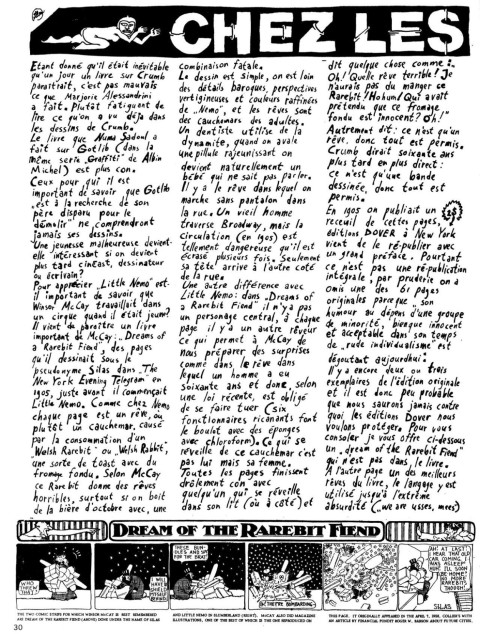 CHEZ LES
Etant donné qu'il était inévitable
qu'un jour un livre sur Crumb
paraîtrait, c'est pas mauvais
ce que Marjorie Alessandrini
a fait. Plutôt fatiguant de
lire ce qu'on a vu déjà dans
les dessins de Crumb.
Le livre que Numa Sadoul a
fait sur Gotlib (dans la
même serie "Graffiti" de Albin
Michel) est plus con.
Ceux pour qui il est
important de savoir que Gotlib
"est à la recherche de son
père disparu pour le
démolir" ne comprendront
jamais ses dessins.
Une jeunesse malheureuse devient-
elle intéressant si on devient
plus tard cinéast, dessinateur
ou écrivain?
Pour apprécier "Little Nemo" est-
il important de savoir que
Winsor McCay travaillait dans
un cirque quand il était jeune?
Il vient de paraître un livre
important de McCay: "Dreams of
a Rarebit Fiend", des pages
qu'il dessinait sous le
pseudonyme Silas dans "The
New York Evening Telegram" en
1905, juste avant il commençait
Little Nemo. Comme chez Nemo
chaque page est un rêve, ou
plutôt un cauchemar, causé
par la consommation d'un
"Welsh Rarebit" ou "Welsh Rabbit",
une sorte de toast avec du
fromage fondu. Selon McCay
ce Rarebit donne des rêves
horribles, surtout si on boit
de la bière d'octobre avec, une
combinaison fatale.
Le dessin est simple, on est loin
des détails baroques, perspectives
vertigineuses et couleurs raffinées
de "Nemo", et les rêves sont
des cauchemars des adultes.
Un dentiste utilise de la
dynamite, quand on avale
une pillule rajeunissant on
devient naturellement un
bébé qui ne sait pas parler.
Il y a le rêve dans lequel on
marche sans pantalon dans
la rue. Un vieil homme
traverse Brodway, mais la
circulation (en 1905) est
tellement dangereuse qu'il est
écrasé plusieurs fois. Seulement
sa tête arrive à l'autre coté
de la rue.
Une autre différence avec
Little Nemo: dans "Dreams of
a Rarebit Fiend" il n'y a pas
un personage central, à chaque
page il y a un autre rêveur
ce qui permet à McCay de
nous préparer des surprises
comme dans le rêve dans
lequel un homme a eu
soixante ans et donc, selon
une loi récente, est obligé
de se faire tuer (six
fonctionnaires ricanants font
le boulot avec des éponges
avec chloroform). Ce qui se
réveille de ce cauchemar c'est
pas lui mais sa femme.
Toutes les pages finissent
drôlement con avec
quelqu'un qui se réveille
dans son lit (ou à côté) et
dit quelque chose comme:
Oh! Quelle rêve terrible! Je
n'aurais pas du manger ce
Rarebit! Hohum! Qui avait
prétendu que ce fromage
fondu est innocent? Oh!"
Autrement dit: ce n'est qu'un
rêve, donc tout est permis.
Crumb dirait soixante ans
plus tard en plus direct:
ce n'est qu'une bande
dessinée, donc tout est
permis.
En 1905 on publiait un
recueil de cettes pages,
éditions DOVER à New York
vient de le re-publier avec
un grand préface. Pourtant
ce n'est pas une ré-publication
intégrale, par pruderie on a
omis une des 61 pages
originales parceque "son
humour au dépens d'une groupe
de minorité, bienque innocent
et acceptable dans son temps
de "rude individualisme" est
dégoutant aujourdhui."
Il y a encore deux ou trois
exemplaires de l'édition originale
et il est donc peu probable
que nous saurons jamais contre
quoi les éditions Dover nous
voulons protéger. Pour vous
consoler je vous offre ci-dessous
un "dream of the Rarebit Fiend"
qui n'est pas dans le livre.
A l'autre page un des meilleurs
rêves du livre, le langage y est
utilisé jusqu'à l'extrême
absurdité ("we are usses, mees)
DREAM OF THE RAREBIT FIEND
THESE BUN-
DLES ARE ALL
FOR THE BRAT
AH! AT LAST!
I HEAR THAT OLD
CAR COMING. I
WAS ASLEEP
AND I'LL SOON
BE HOME.
NO MORE
RAREBITS
THOUGH!
SILAS
THE TWO COMIC STRIPS FOR WHICH WINSOR MCCAY IS BEST REMEMBERED
ARE DREAM OF THE RAREBIT FIEND (ABOVE) DONE UNDER THE NAME OF SILAS
AND LITTLE NEMO IN SLUMBERLAND (RIGHT). MCCAY ALSO DID MAGAZINE
ILLUSTRATIONS, ONE OF THE BEST OF WHICH IS THE ONE REPRODUCED ON
THIS PAGE. IT ORIGINALLY APPEARED IN THE APRIL 7, 1928, COLLIER'S WITH
AN ARTICLE BY FINANCIAL PUNDIT ROGER W. BABSON ABOUT FUTURE CITIES.
30